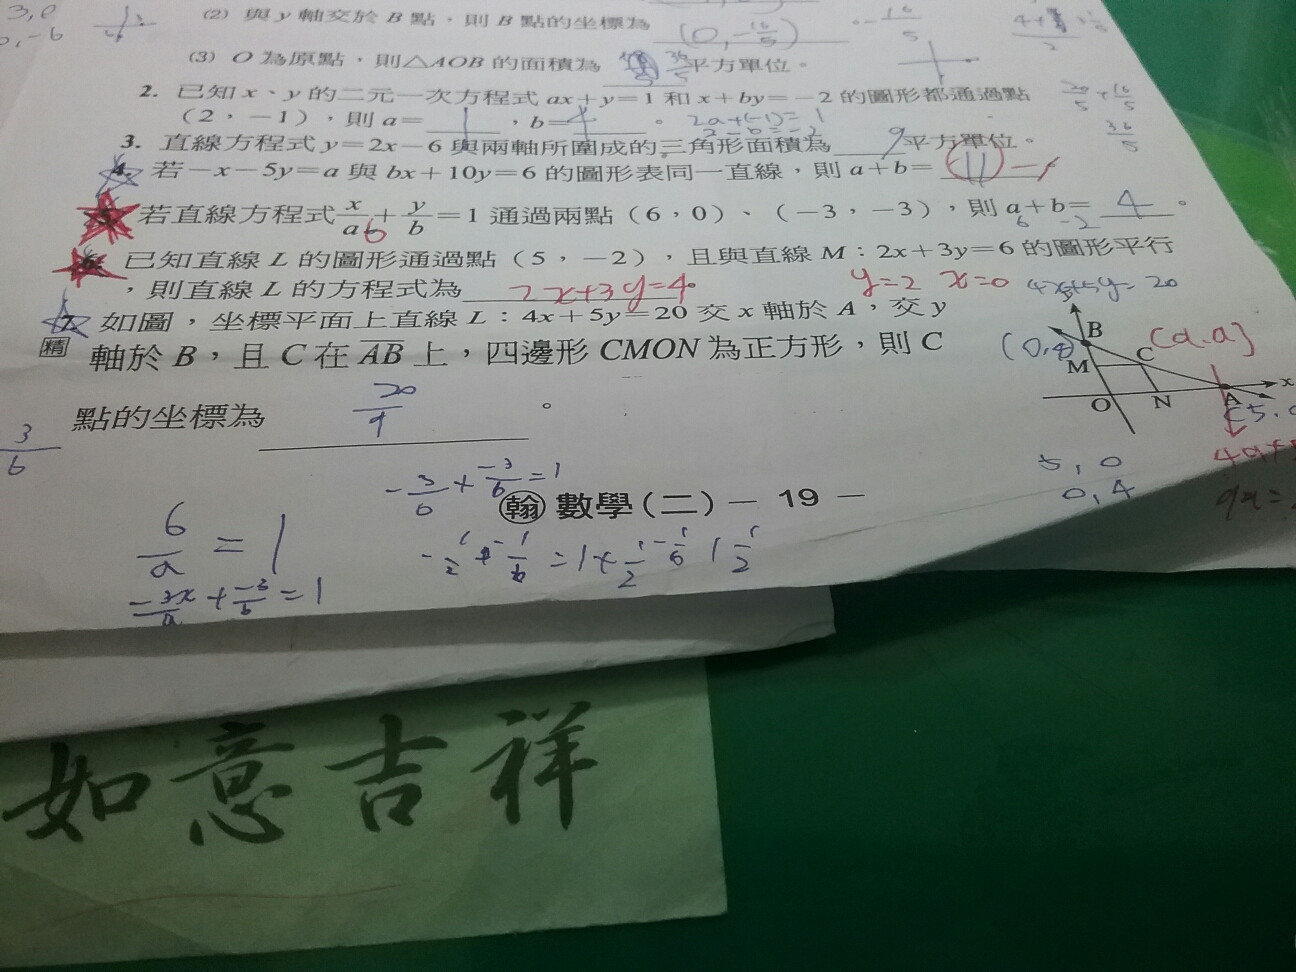 3,0
(2) 與 y 軸交於 B 點，則 B 點的坐標為 (0,-16/5)
(3) O 為原點，則△AOB 的面積為 36/5 平方單位。
2. 已知 x、y 的二元一次方程式 ax+y=1 和 x+by=-2 的圖形都通過點
(2，-1)，則 a= 1，b= 4。 2a+(-1)=1
2-b=-2
20/5 + 16/5
36/5
3. 直線方程式 y=2x-6 與兩軸所圍成的三角形面積為 9 平方單位。
4. 若 -x-5y=a 與 bx+10y=6 的圖形表同一直線，則 a+b=
5. 若直線方程式 x/a + y/b =1 通過兩點 (6，0)、(-3，-3)，則 a+b= 4。
6 6 -2
6. 已知直線 L 的圖形通過點 (5，-2)，且與直線 M：2x+3y=6 的圖形平行
，則直線 L 的方程式為 2x+3y=4。 y=2 x=0 4x+5y=20
7. 如圖，坐標平面上直線 L：4x+5y=20 交 x 軸於 A，交 y
精 軸於 B，且 C 在 AB 上，四邊形 CMON 為正方形，則 C
點的坐標為 20/9 。
B C (a.a)
M
O N A x
5,0
0,4
3/6
-3/6 + -3/b =1
翰 數學(二) - 19 -
6/a = 1
-3x/a + -3/b = 1
如意吉祥